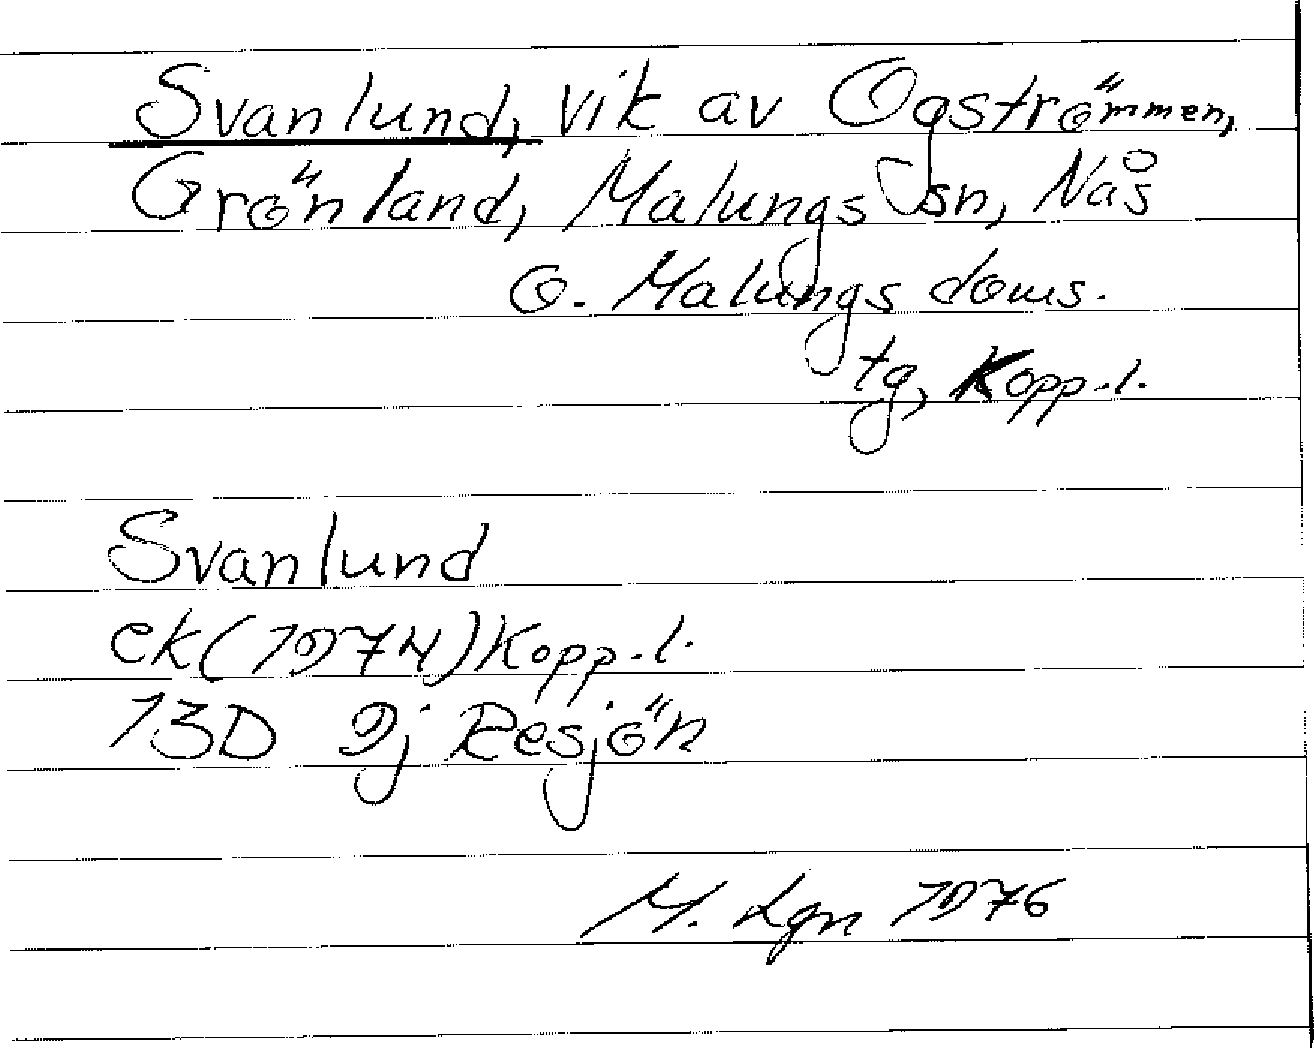 Svanlund, vik av Ogströmmen,
Grönland, Malungs sn, Nås
o. Malungs doms.
tg, Kopp.l.
Svanlund
ek(1974)Kopp.l.
13D 9j Resjön
M. Lgn 1976